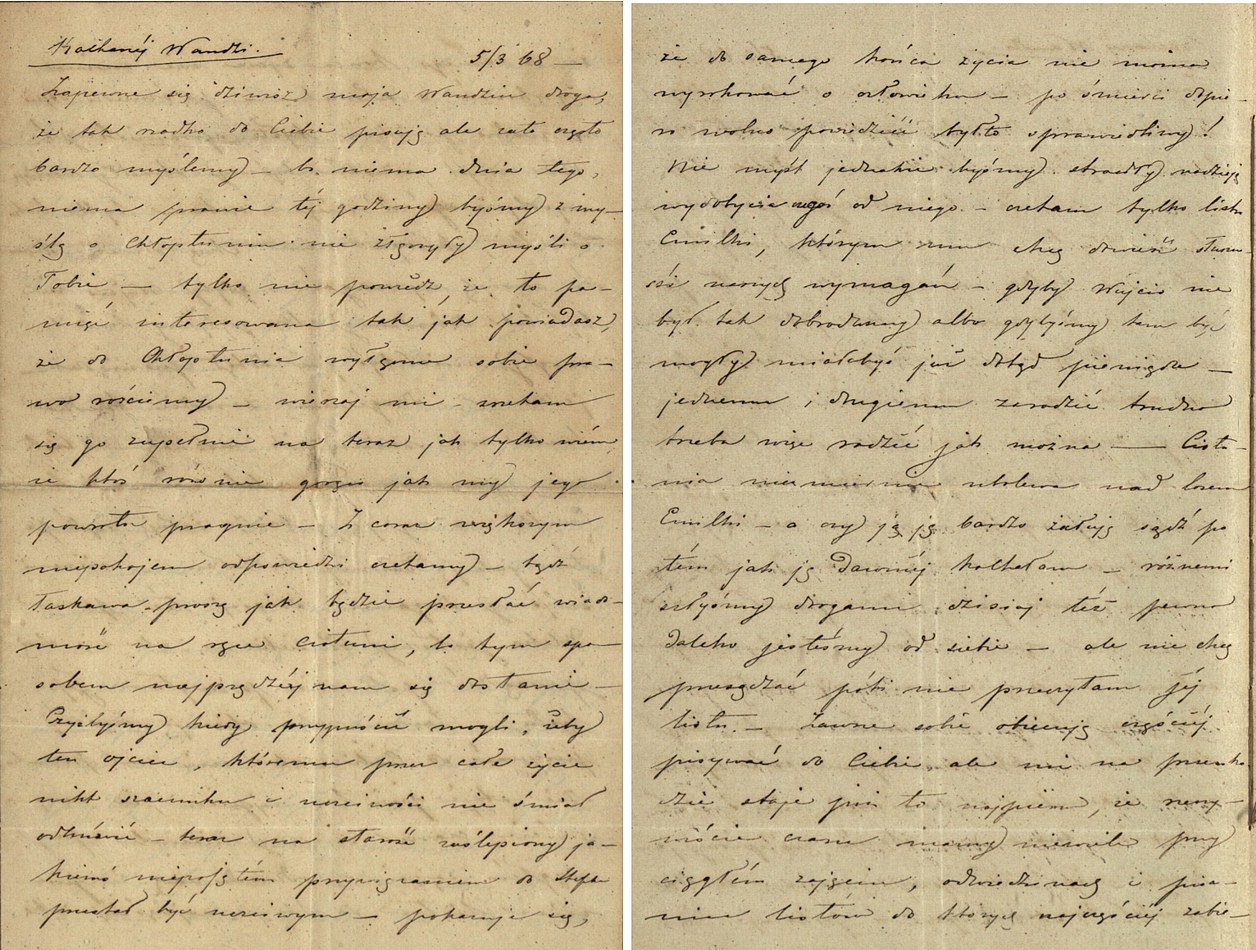 Kochanéj Wandzi.
5/3 68 —
Zapewne się dziwisz moja Wandziu droga,
że tak rzadko do Ciebie pisuję ale zato często
bardzo myślemy — bo niema dnia tego,
niema prawie téj godziny byśmy z my-
ślą o Chłoptuniu nie łączyły myśli o
Tobie — tylko nie powiedz, że to pa-
mięć interesowana tak jak powiadasz,
że do Chłoptunia wyłączne sobie pra-
wo rościemy — wierzaj mi zrzekam
się go zupełnie na teraz jak tylko wiém
że ktoś równie gorąco jak my jego
powrotu pragnie — Z coraz większym
niepokojem odpowiedzi czekamy — bądź
łaskawa proszę jak będzie przesłać wiado-
mość na ręce Ciotuni, to tym spo-
sobem najprędzéj nam się dostanie —
Czyżbyśmy kiedy przypuścić mogli, żeby
ten ojciec, któremu przez całe życie
nikt szacunku i uczciwości nie śmiał
odmówić — teraz na starość zaślepiony ja-
kiemś niepojętém przywiązaniem do Stefa
przestał być uczciwym — pokazuje się,
że do samego końca życia nie można
wyrokować o człowieku — po śmierci dopie-
ro wolno powiedzieć był to sprawiedliwy!
Nie myśl jednakże byśmy straciły nadzieję
wydobycia czegoś od niego — czekam tylko listu
Emilki, którym mu chcę dowieść słuszno-
ści naszych wymagań — gdyby Wujcio nie
był tak dobroduszny albo gdybyśmy tam być
mogły miałabyś już dotąd pieniądze —
jednemu i drugiemu zaradzić trudno
trzeba więc radzić jak można — Ciotu-
nia niezmiernie ubolewa nad losem
Emilki — a czy ja ją bardzo żałuję sądź po
tém jak ją dawniéj kochałam — różnemi
szłyśmy drogami dzisiaj też pewno
daleko jesteśmy od siebie — ale nie chcę
przesądzać póki nie przeczytam jéj
listu. — Zawsze sobie obiecuję częściéj
pisywać do Ciebie, ale mi na przeszko-
dzie staje już to najpiérw, że rzeczy-
wiście czasu mamy niewiele przy
ciągłém zajęciu, odwiedzinach i pisa-
niu listów do których najczęściéj zabie-